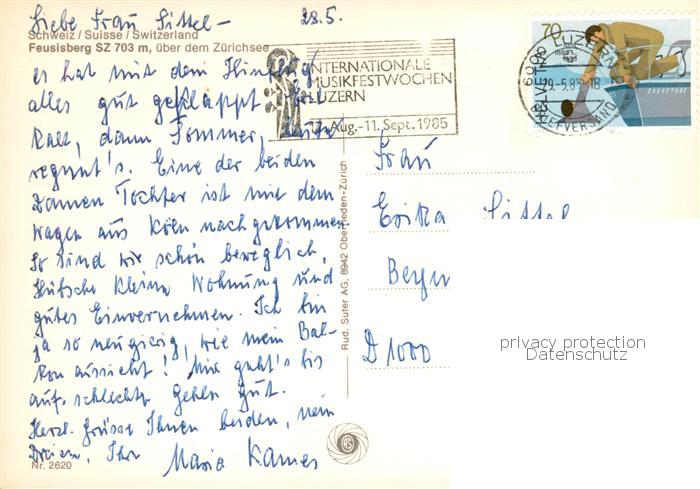 Liebe Frau Sittel – 28.5.
Schweiz / Suisse / Switzerland
Feusisberg SZ 703 m, über dem Zürichsee
es hat mit dem Hinflug
alles gut geklappt. Erst
kalt, dann Sommer, heute
regnet's. Eine der beiden
Damen Tochter ist mit dem
Wagen aus Köln nachgekommen.
So sind wir schön beweglich.
Hübsche kleine Wohnung und
gutes Einvernehmen. Ich bin
ja so neugierig, wie mein Bal-
kon aussieht! Mir geht's bis
auf schlechtes Gehen gut.
Herzl. Grüsse Ihnen beiden, nein
Dreien, Ihre Maria Kames
Nr. 2620
INTERNATIONALE
MUSIKFESTWOCHEN
LUZERN
Aug.-11. Sept. 1985
70
HELVETIA
6000 LUZERN
29.-5.85-18
BRIEFVERSAND
Rud. Suter AG, 8942 Oberrieden-Zürich
RS
Frau
Erika Sittel
D 1000
privacy protection
Datenschutz